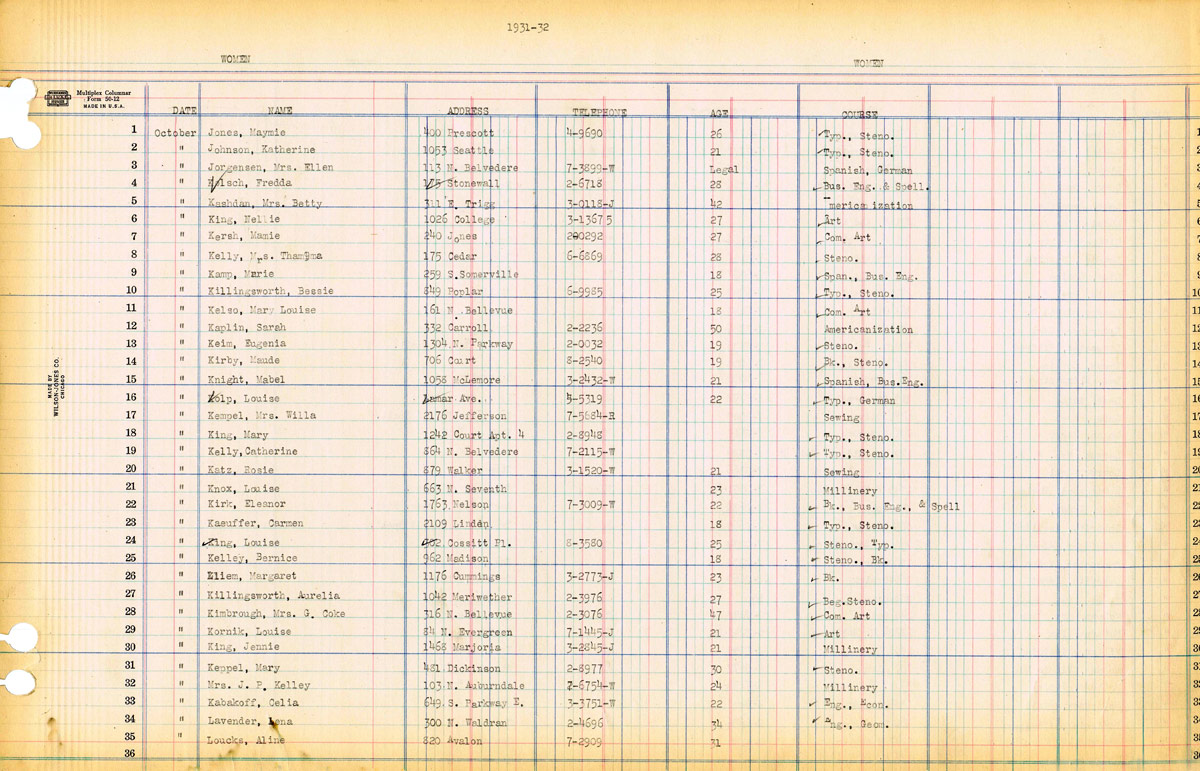 1931-32
WOMEN WOMEN
Multiplex Columnar
Form 50-12
MADE IN U.S.A.
DATE NAME ADDRESS TELEPHONE AGE COURSE
1 October Jones, Maymie 400 Prescott 4-9690 26 Typ., Steno.
2 " Johnson, Katherine 1053 Seattle 21 Typ., Steno.
3 " Jorgensen, Mrs. Ellen 113 N. Belvedere 7-3899-W Legal Spanish, German
4 " Fredda Stonewall 2-6718 28 Bus. Eng. & Spell.
5 " Kashdan, Mrs. Betty 311 E. Trigg 3-0118-J 42 Americanization
6 " King, Nellie 1026 College 3-1367 5 27 Art
7 " Kersh, Mamie 240 Jones 27 Com. Art
8 " Kelly, Mrs. 175 Cedar 6-6869 28 Steno.
9 " Kamp, Marie 259 S.Somerville 18 Span., Bus. Eng.
10 " Killingsworth, Bessie 849 Poplar 6-9985 25 Typ., Steno.
11 " Kelso, Mary Louise 161 N. Bellevue 18 Com. Art
12 " Kaplin, Sarah 332 Carroll 2-2236 50 Americanization
13 " Keim, Eugenia 1304 N. Parkway 2-0032 19 Steno.
14 " Kirby, Maude 706 Court 8-2540 19 Bk., Steno.
15 " Knight, Mabel 1058 McLemore 3-2432-W 21 Spanish, Bus.Eng.
16 " Kolp, Louise Lamar Ave. 22 Typ., German
17 " Kempel, Mrs. Willa 2176 Jefferson 7-5684-R Sewing
18 " King, Mary 1242 Court Apt. 4 2-8948 Typ., Steno.
19 " Kelly,Catherine 864 N. Belvedere 7-2115-W Typ., Steno.
20 " Katz, Rosie 879 Walker 3-1520-W 21 Sewing
21 " Knox, Louise 663 N. Seventh 23 Millinery
22 " Kirk, Eleanor 1763 Nelson 7-3009-W 22 Bk., Bus. Eng., & Spell
23 " Kasuffer, Carmen 2109 Linden 18 Typ., Steno.
24 " King, Louise Cossitt Pl. 8-3580 25 Steno., Typ.
25 " Kelley, Bernice 962 Madison 18 Steno., Bk.
26 " Kliem, Margaret 1176 Cummings 3-2773-J 23 Bk.
27 " Killingsworth, Aurelia 1042 Meriwether 2-3976 27 Beg.Steno.
28 " Kimbrough, Mrs. G. Coke 316 N. Bellevue 2-3076 47 Com. Art
29 " Kornik, Louise 84 N. Evergreen 7-1445-J 21 Art
30 " King, Jennie 1468 Marjoria 3-2845-J 21 Millinery
31 " Keppel, Mary 481 Dickinson 2-8977 30 Steno.
32 " Mrs. J. P. Kelley 103 N. Auburndale 7-6754-W 24 Millinery
33 " Kabakoff, Celia 649 S. Parkway E. 3-3751-W 22 Eng., Econ.
34 " Lavender, Lena 300 N. Waldran 2-4696 34 Eng., Geom.
35 " Loucks, Aline 820 Avalon 7-2909 31
36
MADE BY
WILSON-JONES CO.
CHICAGO